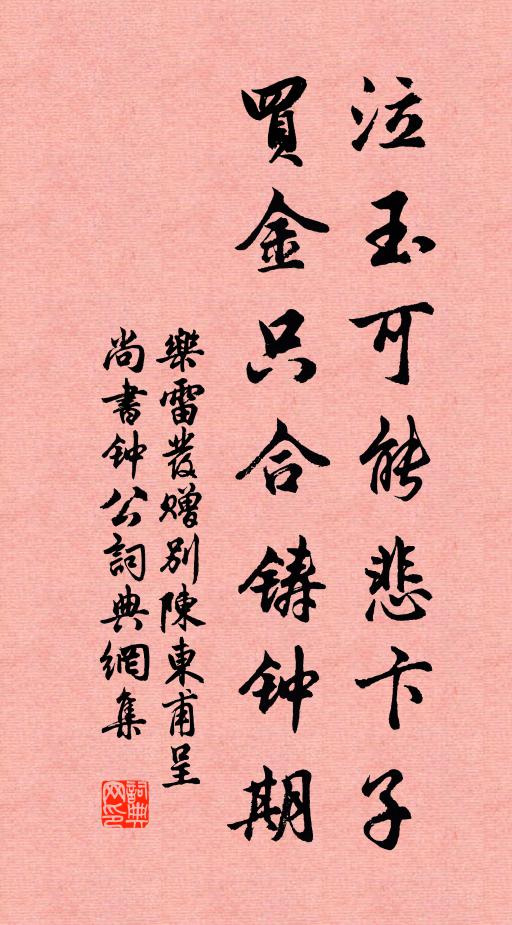 泣玉可能悲卞子
買金只合铸钟期
樂雷發赠别陳東甫呈
尚書钟公詞典網集
詞典网印